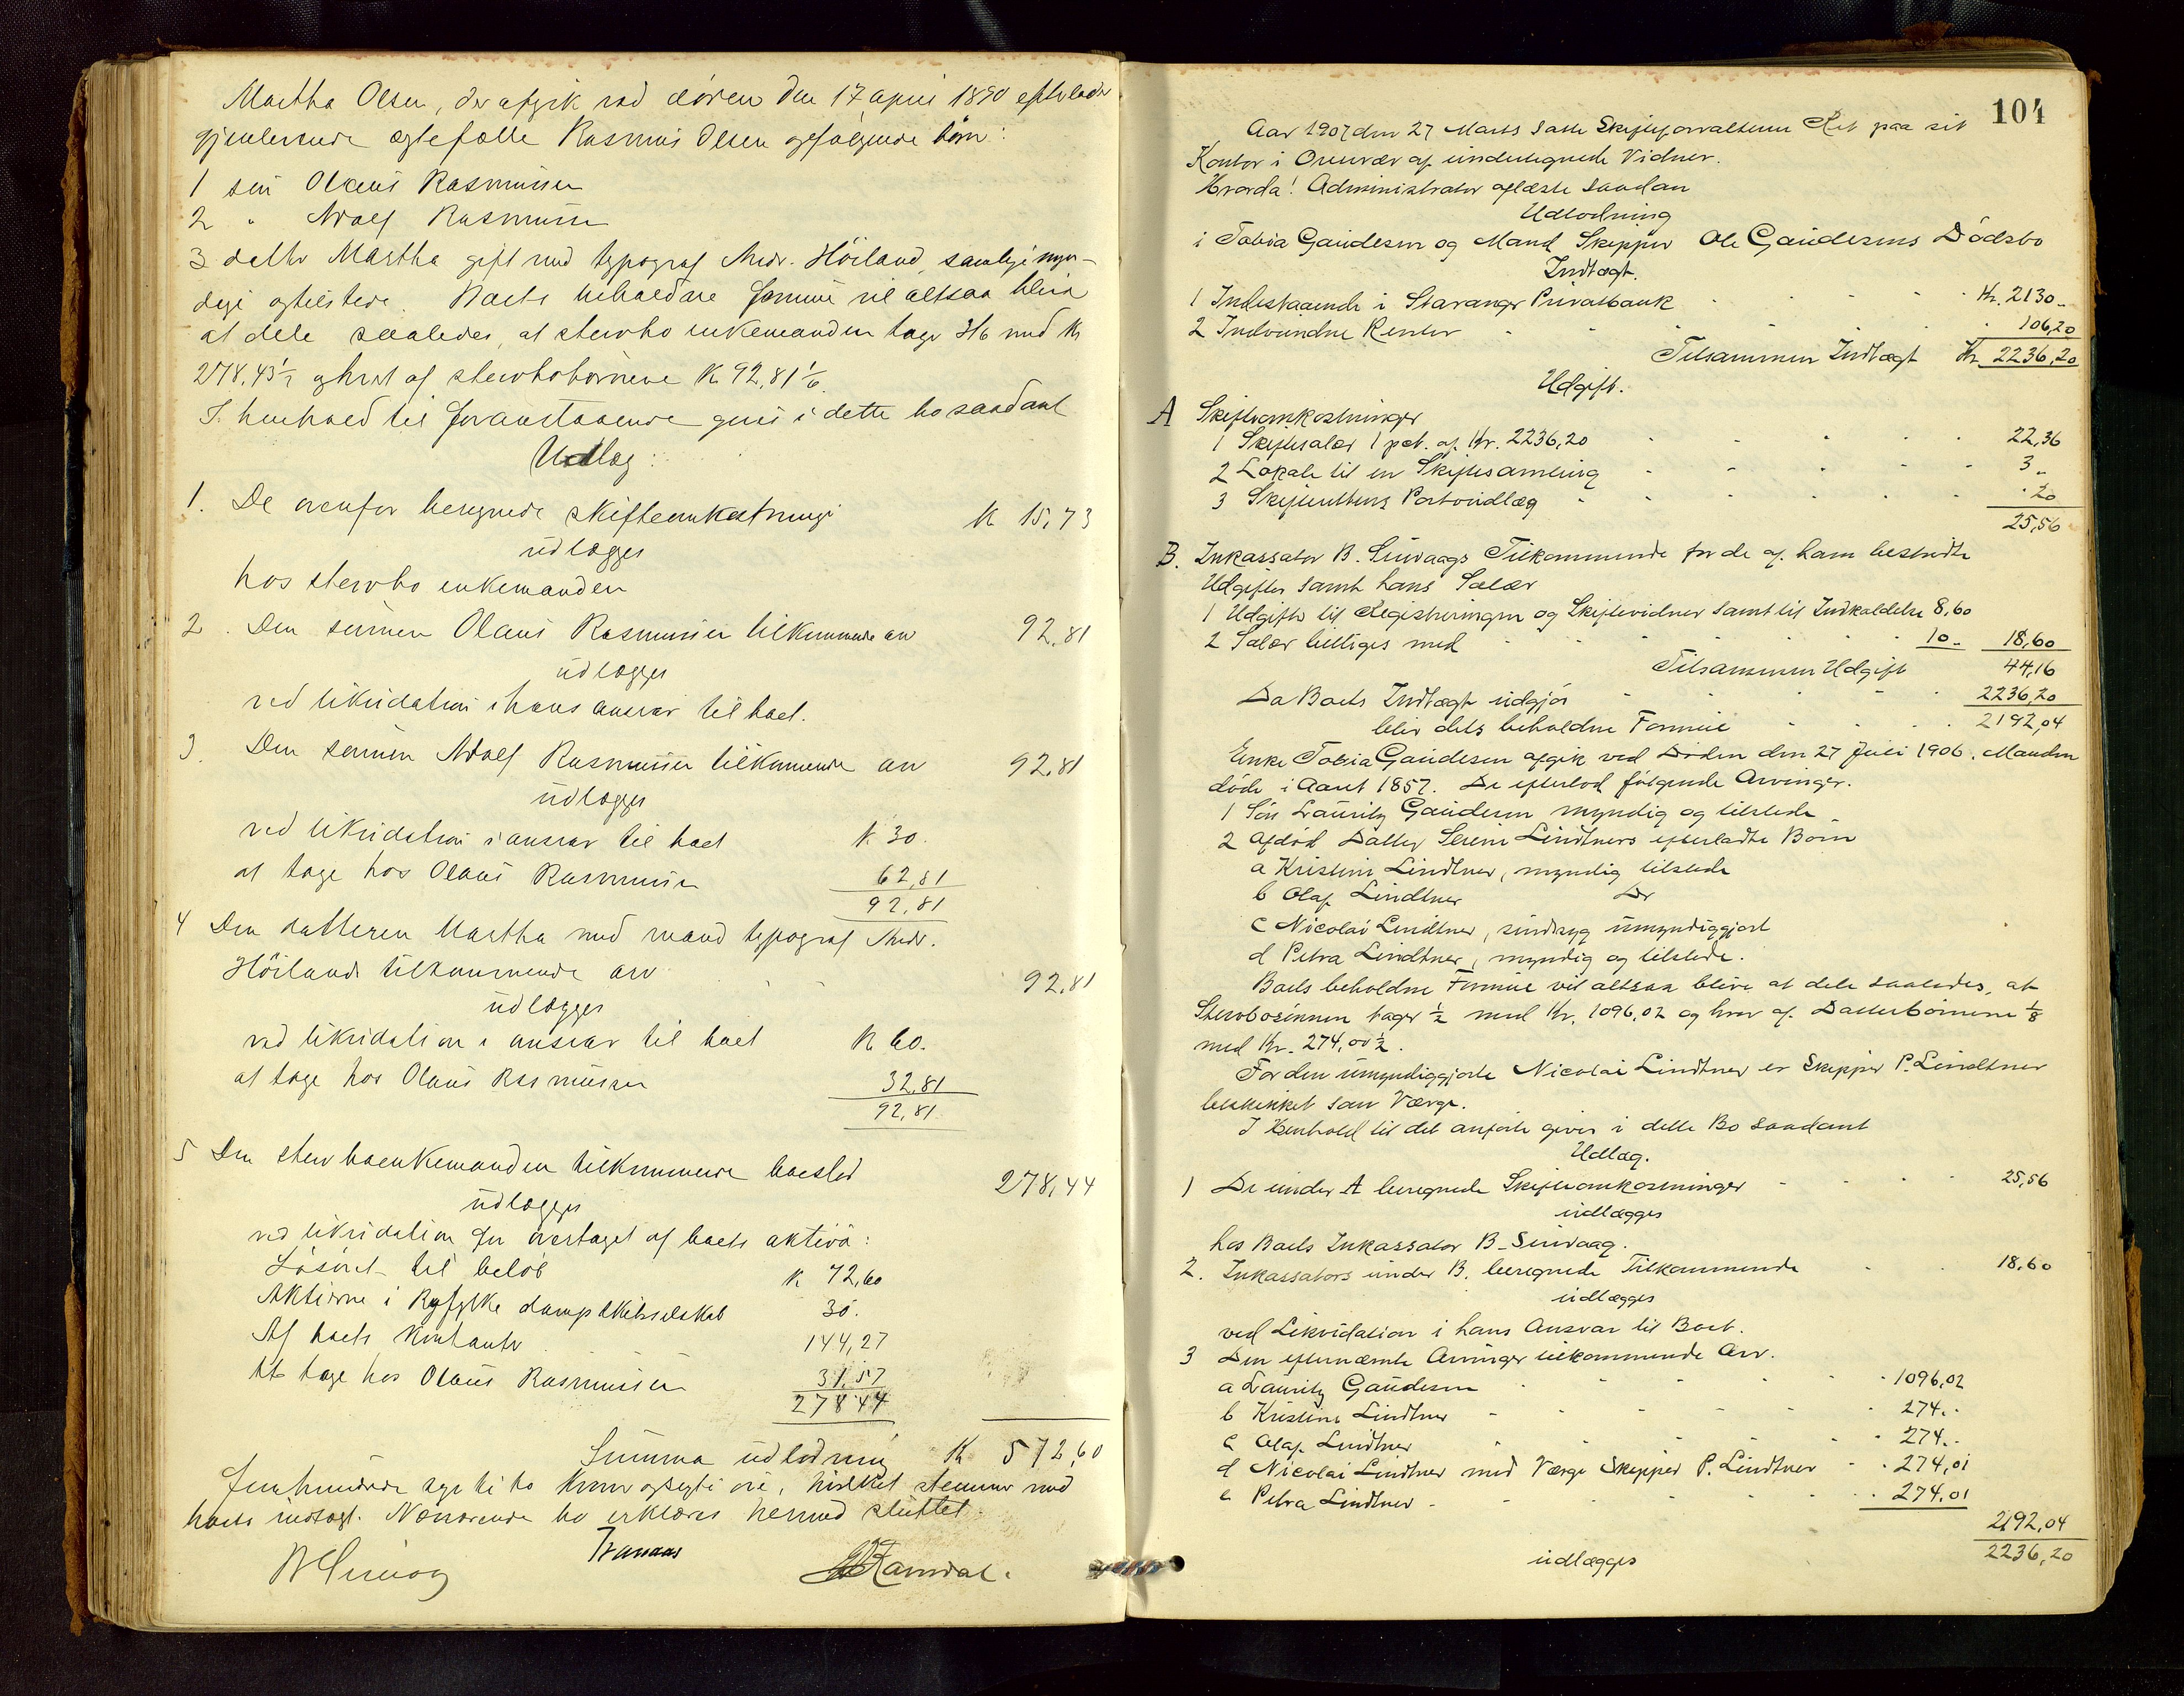 Martha Olsen, der afgik ved døden den 17 april 1890 efterlod
gjenlevende ægtefælle Rasmus Olsen og følgende børn:
1 søn Olaus Rasmussen
2 " Adolf Rasmussen
3 datter Martha gift med typograf Andr. Höiland, samtlige myn-
dige og tilstede. Boets beholdne formue vil altsaa blive
at dele saaledes, at stervboenkemanden tager 3/6 med Kr
278,43½ og hvert af stervbobørnene K 92,81 1/6.
I henhold til foranstaaende gives i dette bo saadant
Udlæg:
1. De ovenfor beregnede skifteomkostninger K 15,73
udlægges
hos stervboenkemanden
2. Den sønnen Olaus Rasmussen tilkommende arv 92,81
udlægges
ved likvidation i hans ansvar til boet.
3. Den sønnen Adolf Rasmussen tilkommende arv 92,81
udlægges
ved likvidation i ansvar til boet K 30.
at tage hos Olaus Rasmussen 62,81
92,81
4 Den datteren Martha med mand typograf Andr.
Höiland tilkommende arv 92,81
udlægges
ved likvidation i ansvar til boet K 60.
at tage hos Olaus Rasmussen 32,81
92,81
5 Den stervboenkemanden tilkommende boeslod 278,44
udlægges
ved likvidation for overtaget af boets aktiva:
Løsøret til beløb K 72,60
Aktierne i Ryfylke dampskibsselskab 30.
Af boets kontanter 144,27
At tage hos Olaus Rasmussen 31,57
278 44
Summa udlodning K 572,60
femhundrede sytti to kroner og sexti øre, hvilket stemmer med
boets indtægt. Nærværende bo erklæres hermed sluttet.
104
Aar 1907 den 27 Marts satte Skifteforvalteren Ret paa sit
Kontor i Overvær af undertegnede Vidner.
Hvorda! Administrator oplæste saadan
Udlodning
i Tobia Gaudesen og Mand Skipper Ole Gaudesens Dödsbo
Indtægt.
1 Indestaaende i Stavanger Privatbank Kr. 2130.-
2 Indvundne Renter 106,20
Tilsammen Indtægt Kr. 2236,20
Udgift.
A Skifteomkostninger
1 Skiftesalær 1 pct. af Kr. 2236,20 22,36
2 Lokale til en Skiftesamling 3.-
3 Skifterettens Portoudlæg .20
25,56
B. Inkassator B. Sunvaags Tilkommende for de af ham bestridte
Udgifter samt hans Salær
1 Udgifter til Registreringen og Skiftevidner samt til Indkaldelse 8,60
2 Salær billiges med 10.- 18,60
Tilsammen Udgift 44,16
Da Boets Indtægt udgjör 2236,20
blir dets beholdne Formue 2192,04
Enke Tobia Gaudesen afgik ved Döden den 27 Juli 1906. Manden
döde i Aaret 1857. De efterlod fölgende Arvinger.
1 Sön Lauritz Gaudesen myndig og tilstede
2 Afdöd Datter Serine Lindtners efterladte Börn
a Kristine Lindtner, myndig tilstede
b Olaf Lindtner Do
c Nicolai Lindtner, sindssyg umyndiggjort
d Petra Lindtner, myndig og tilstede.
Boets beholdne Formue vil altsaa blive at dele saaledes, at
Stervbosönnen tager ½ med Kr. 1096,02 og hver af Datterbörnene 1/8
med Kr. 274,00½.
For den umyndiggjorte Nicolai Lindtner er Skipper P. Lindtner
beskikket som Værge.
I Henhold til det anförte gives i dette Bo saadant
Udlæg.
1 De under A beregnede Skifteomkostninger 25,56
udlægges
hos Boets Inkassator B. Sunvaag.
2. Inkassators under B. beregnede Tilkommende 18,60
udlægges
ved Likvidation i hans Ansvar til Boet.
3 Den efternævnte Arvinger tilkommende Arv.
a Lauritz Gaudesen 1096,02
b Kristine Lindtner 274.-
c Olaf Lindtner 274.-
d Nicolai Lindtner med Værge Skipper P. Lindtner 274,01
e Petra Lindtner 274,01
2192,04
udlægges 2236,20